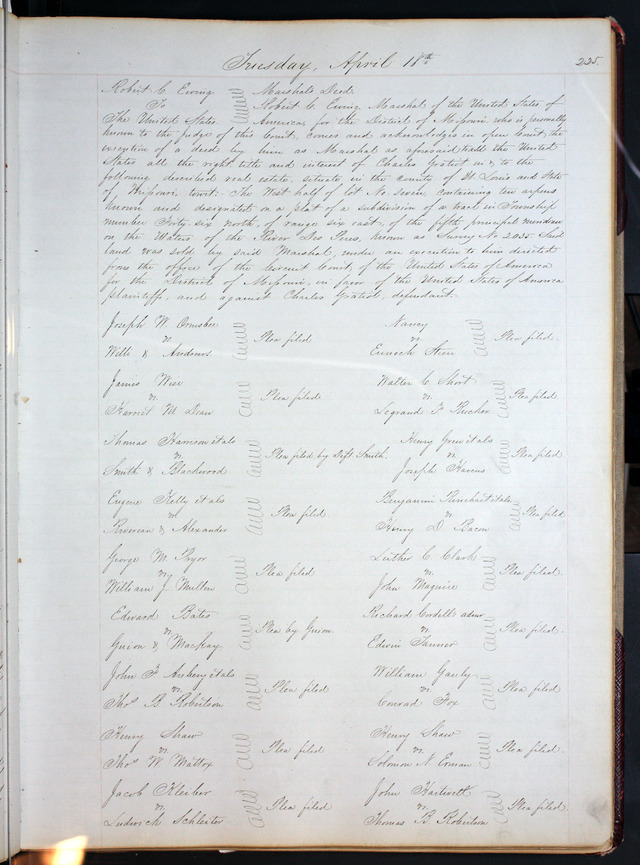 Tuesday, April 18th
225.
Robert C. Ewing Marshals Deed.
To Robert C. Ewing Marshal of the United States of
The United States America, for the District of Missouri who is personally
known to the judge of this Court, comes and acknowledges in open Court, the
execution of a deed by him as Marshal as aforesaid to all the United
States all the right title and interest of Charles Gratiot in & to the
following described real estate, situate in the county of St Louis and State
of Missouri, to wit: The West half of lot No. Seven, containing ten arpens
known and designated on a plat of a subdivision of a tract in Township
number Forty-six North, of range six east, of the fifth principal meridian
on the Waters of the River Des Peres, known as Survey No 2035. Said
land was sold by said Marshal, under an execution to him directed
from the office of the Circuit Court, of the United States of America
for the District of Missouri, in favor of the United States of America
plaintiff, and against Charles Gratiot, defendant.
Joseph W. Ormsbee
vs. Plea filed
Wills & Andrews
Nancy
vs. Plea filed.
Enoch Steen
James Wier
vs. Plea filed
Harriet M. Dean
Walter C. Short
vs. Plea filed.
Legrand F. Rucker
Thomas Harrison et als
vs. Plea filed by Deft. Smith.
Smith & Blackwood
Henry Grew et als
vs. Plea filed
Joseph
Eugene Kelly et als
vs. Plea filed.
& Alexander
Benjamin Rinehart et als
vs. Plea filed
Henry D. Bacon
George M. Pryor
vs. Plea filed
William J. Mullen
Luther C. Clark
vs. Plea filed.
John Maguire
Edward Bates
vs. Plea by Guion.
Guion & MacKay
Richard Cordell admr
vs. Plea filed.
Edwin Tanner
John F. et als
vs. Plea filed
Thos B. Robertson
William Gauby
vs. Plea filed
Conrad Fox
Henry Shaw
vs. Plea filed
Thos W. Mattox
Henry Shaw
vs. Plea filed
Solomon N.
Jacob Kleiber
vs. Plea filed
Ludwich Schleiter
John Hartnett
vs. Plea filed.
Thomas B. Robertson